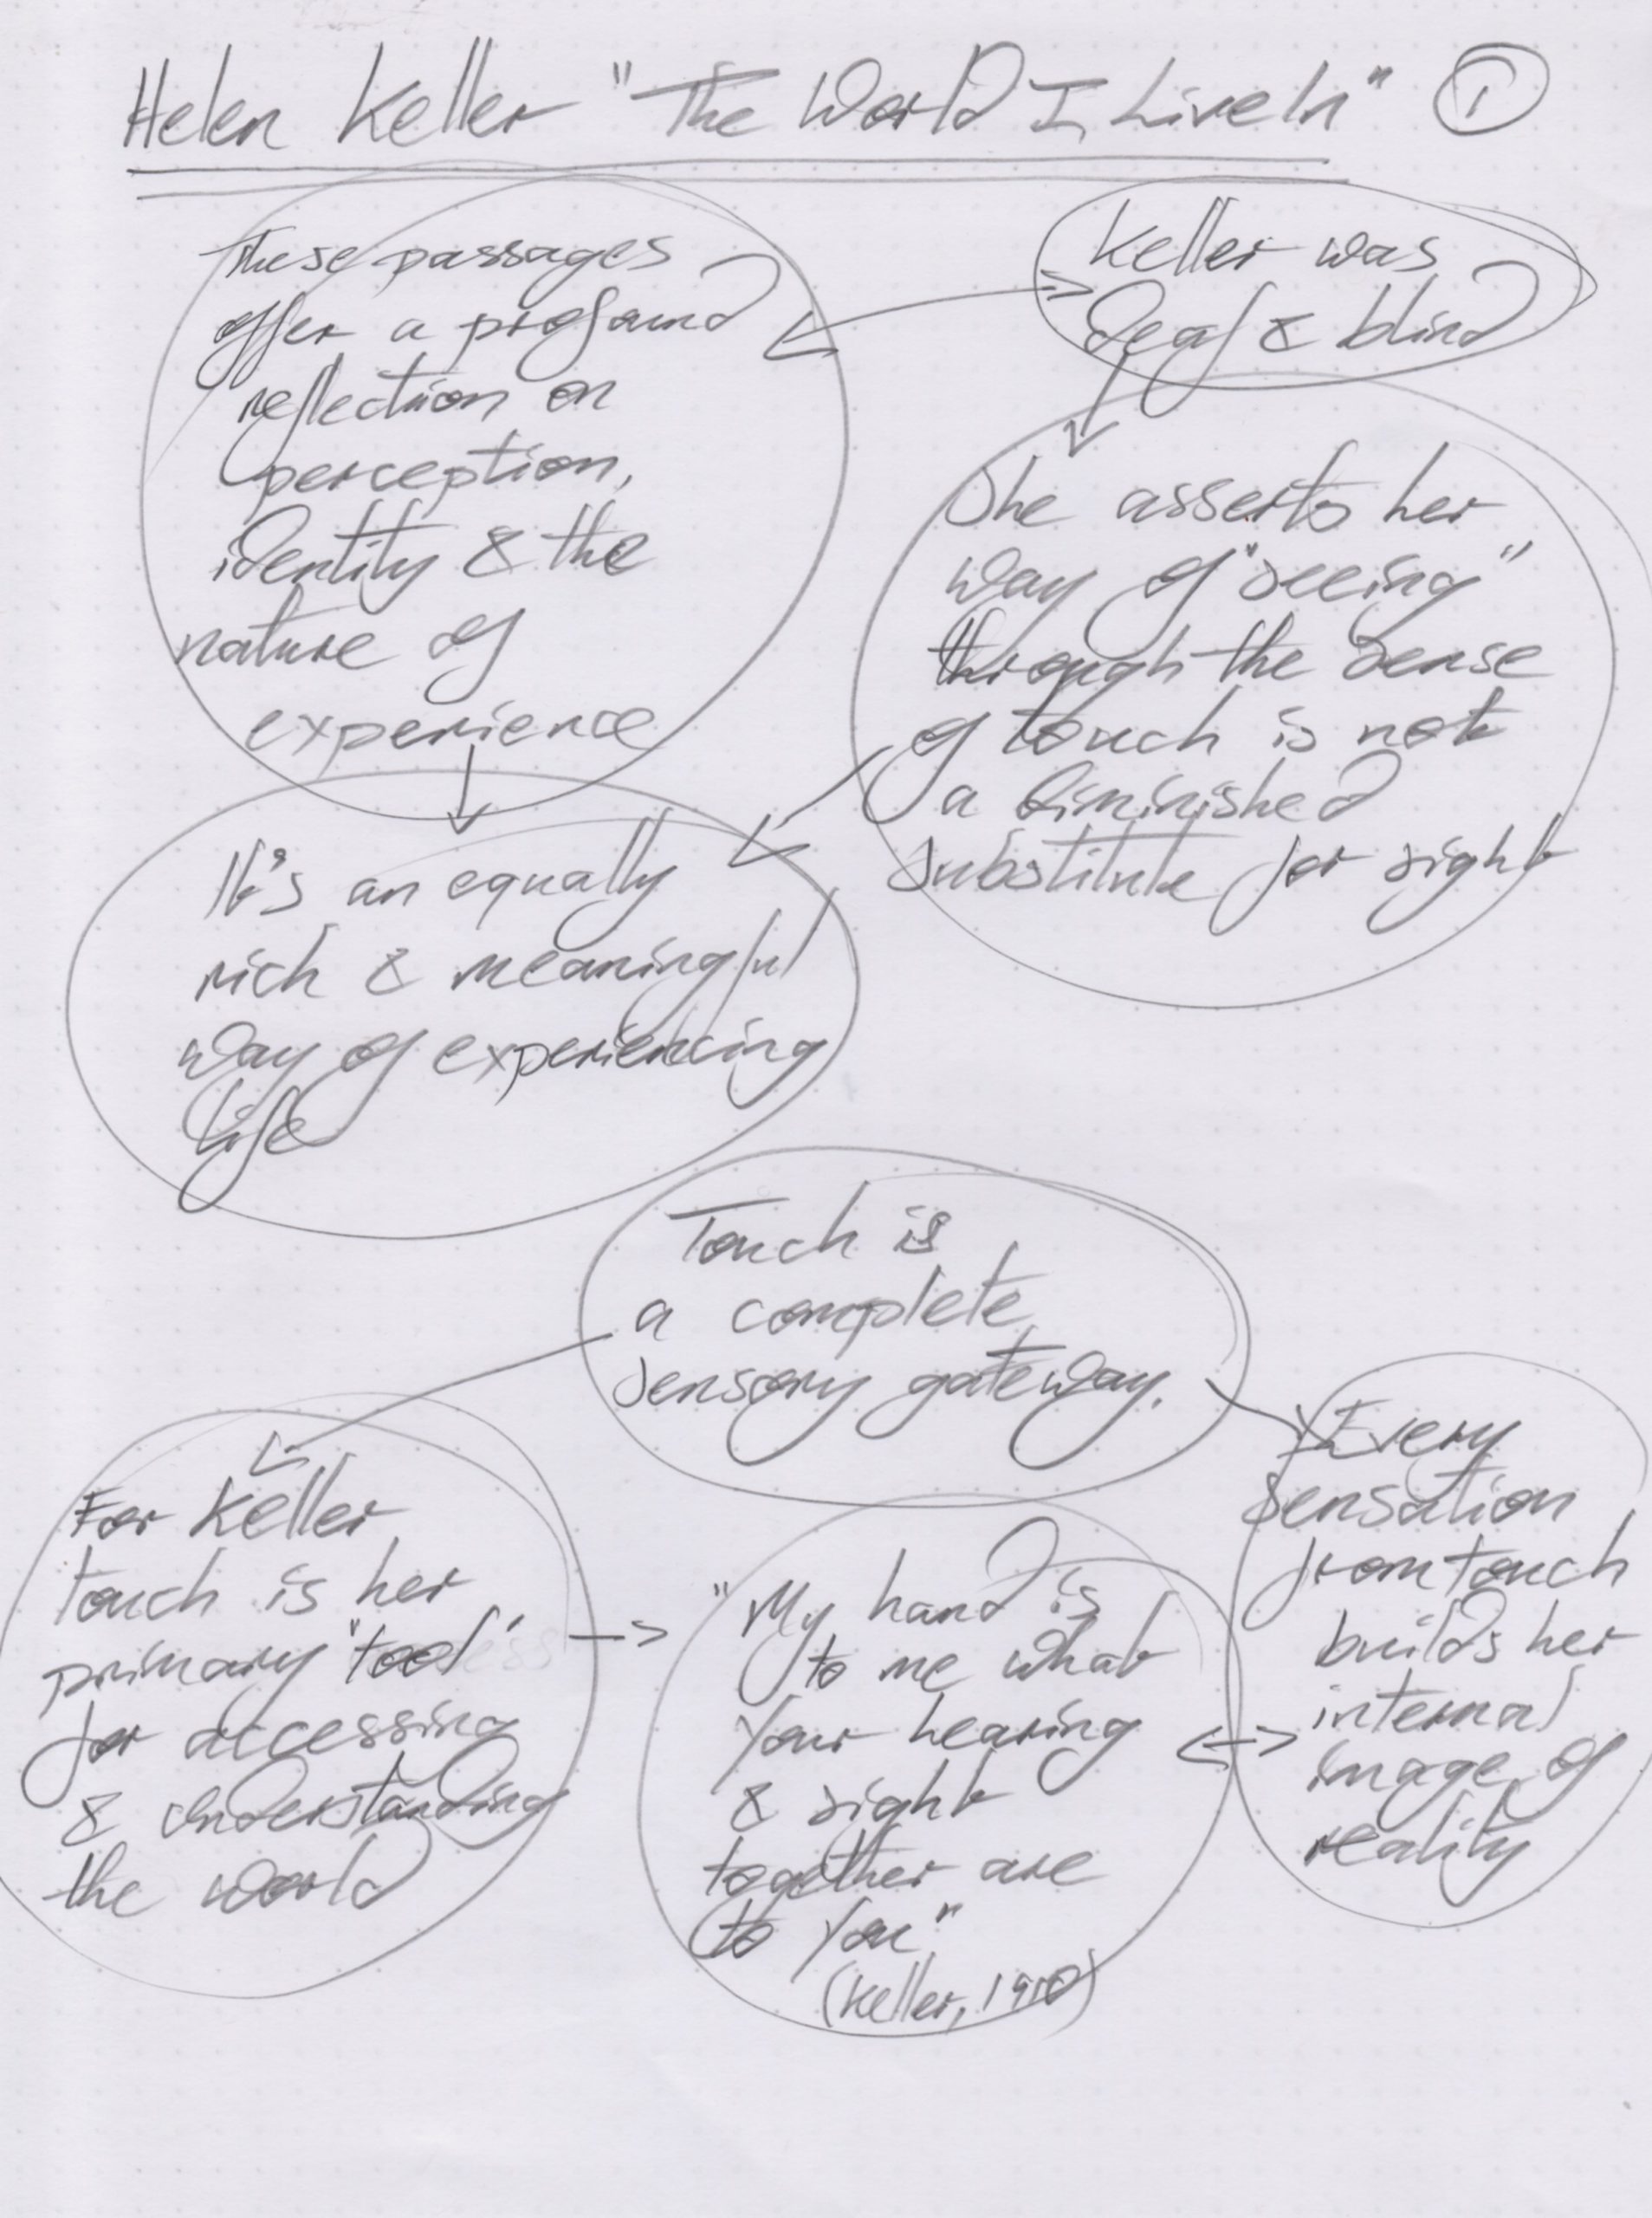 Helen Keller "The World I Live In" 1
These passages
offer a profound
reflection on
perception,
identity & the
nature of
experience
Keller was
deaf & blind
She asserts her
way of "seeing"
through the sense
of touch is not
a diminished
substitute for sight
It's an equally
rich & meaningful
way of experiencing
life
Touch is
a complete
sensory gateway.
For Keller
touch is her
primary "tool"
for accessing
& understanding
the world
"My hand is
to me what
your hearing
& sight
together are
to you"
(Keller, 1910)
Every
sensation
from touch
builds her
internal
image of
reality